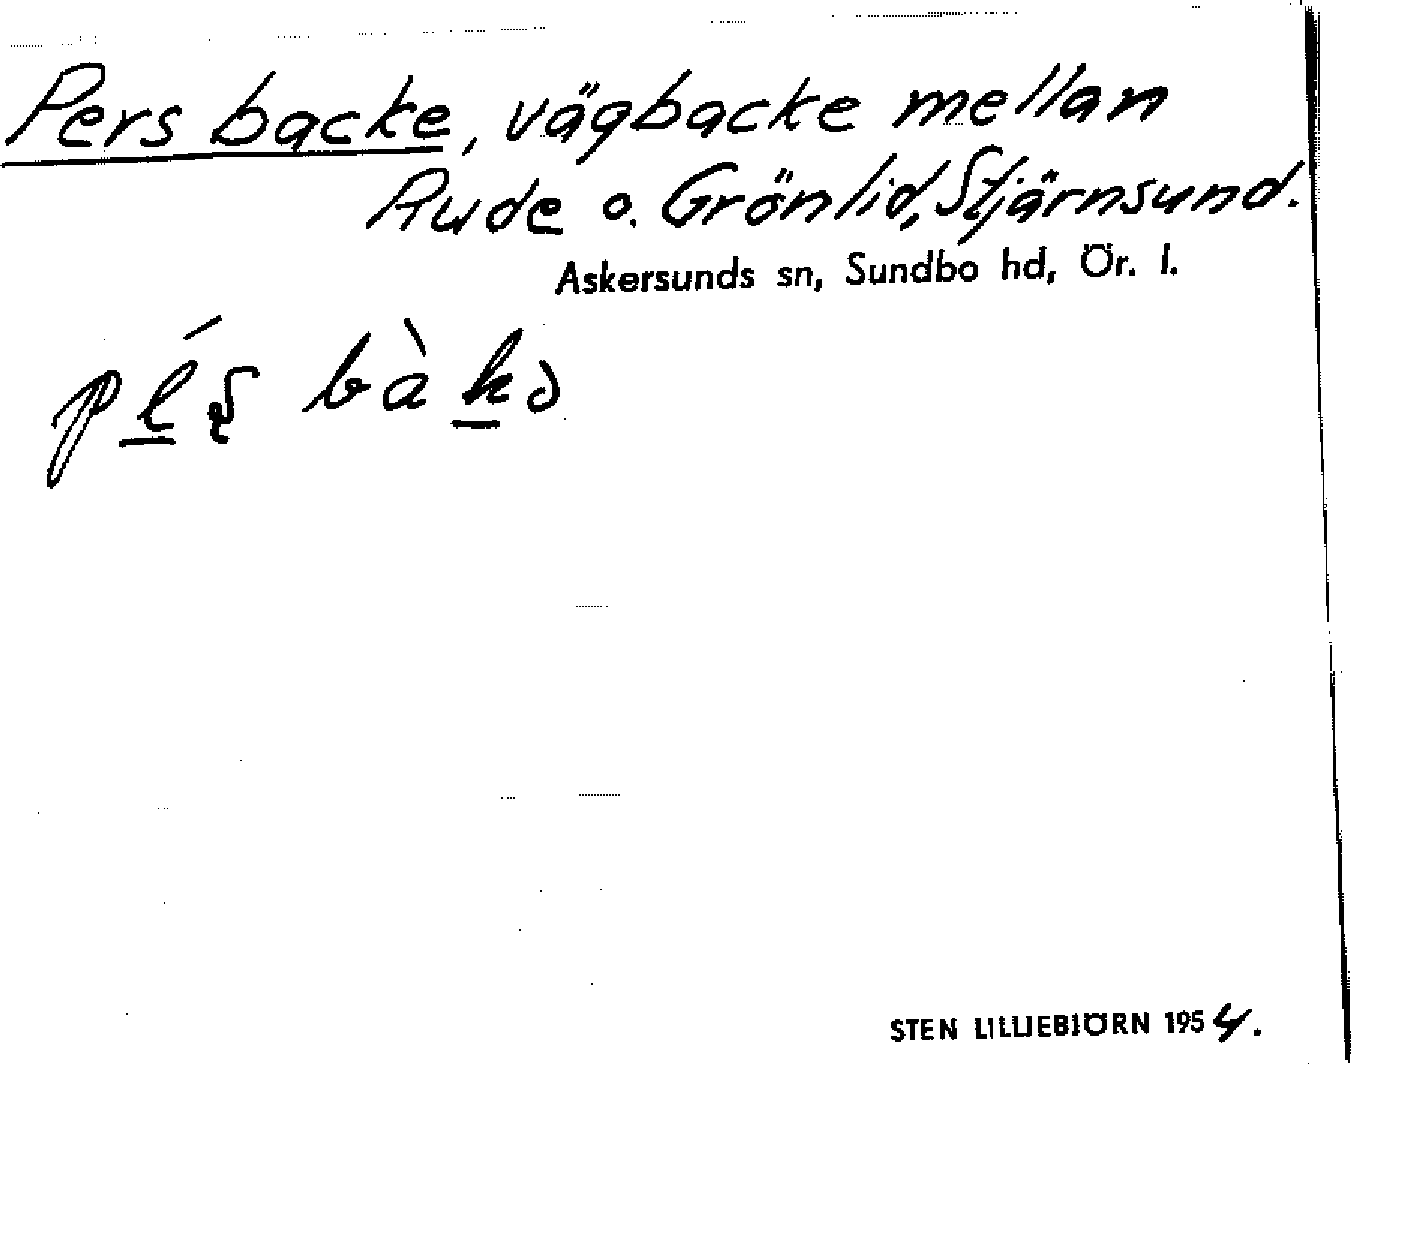 Pers backe, vägbacke mellan
Rude o. Grönlid, Stjärnsund.
Askersunds sn, Sundbo hd, Ör. l.
bàkə
STEN LILLIEBJÖRN 1954.